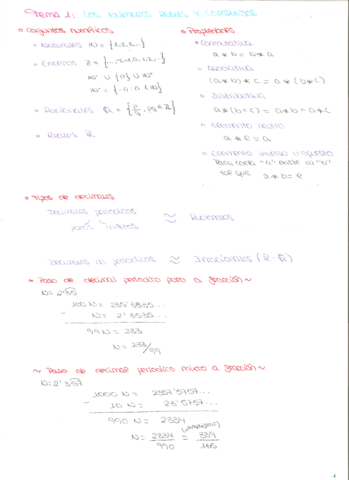 Tema 1: LOS NÚMEROS REALES Y COMPLEJOS
• Conjuntos numéricos
• Naturales N = {1,2,3,...}
• Enteros Z = {...,-2,-1,0,1,2,...}
• Racionales Q =
• Reales R
• Propiedades
• Conmutativa
a * b = b * a
• Asociativa
(a * b) * c = a * (b * c)
• Distributiva
a * (b ∘ c) = a * b ∘ a * c
• Elemento neutro
a * e = a
• Elemento inverso u opuesto
Para cada "a" existe un "b"
tal que a * b = e
• Tipos de decimales
Decimales periodicos ≈ Racionales
Decimales no periodicos ≈ Irracionales (R - Q)
• Paso de decimal periodico puro a fracción ~
100 N =
- N =
99 N = 233
N = 233/99
~ Paso de decimal periodico mixto a fracción ~
N = 2'357
1000 N = 2357'5757...
- 10 N = 23'5757...
990 N = 2334
N = 2334/990 =